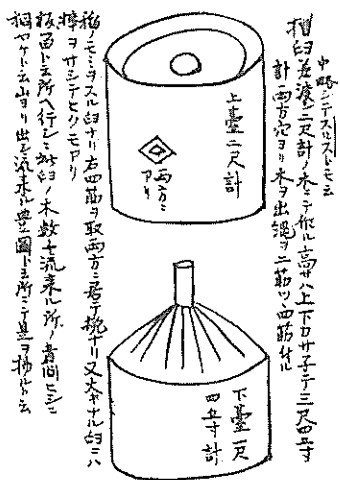 中略シテスルストモ云
摺臼差渡二尺計ノ木ニテ作ル高サハ上下カサ子テ三尺四五寸
計両方穴ヨリ木ヲ出縄ヲ二筋ツヽ四筋付ル
上臺二尺計
両方ニ
アリ
下臺一尺
四五寸計
稲ノモミヲスル臼ナリ右四筋ヲ取両方ニ居テ挽ナリ又大キナル臼ニハ
サシテヒクモアリ
ト云所ヘ行シニ此臼ノ木数多流来ル所ノ者問ヒシニ
ト云山ヨリ出テ流来ル ト云所ニテ是ヲ揚ルト云